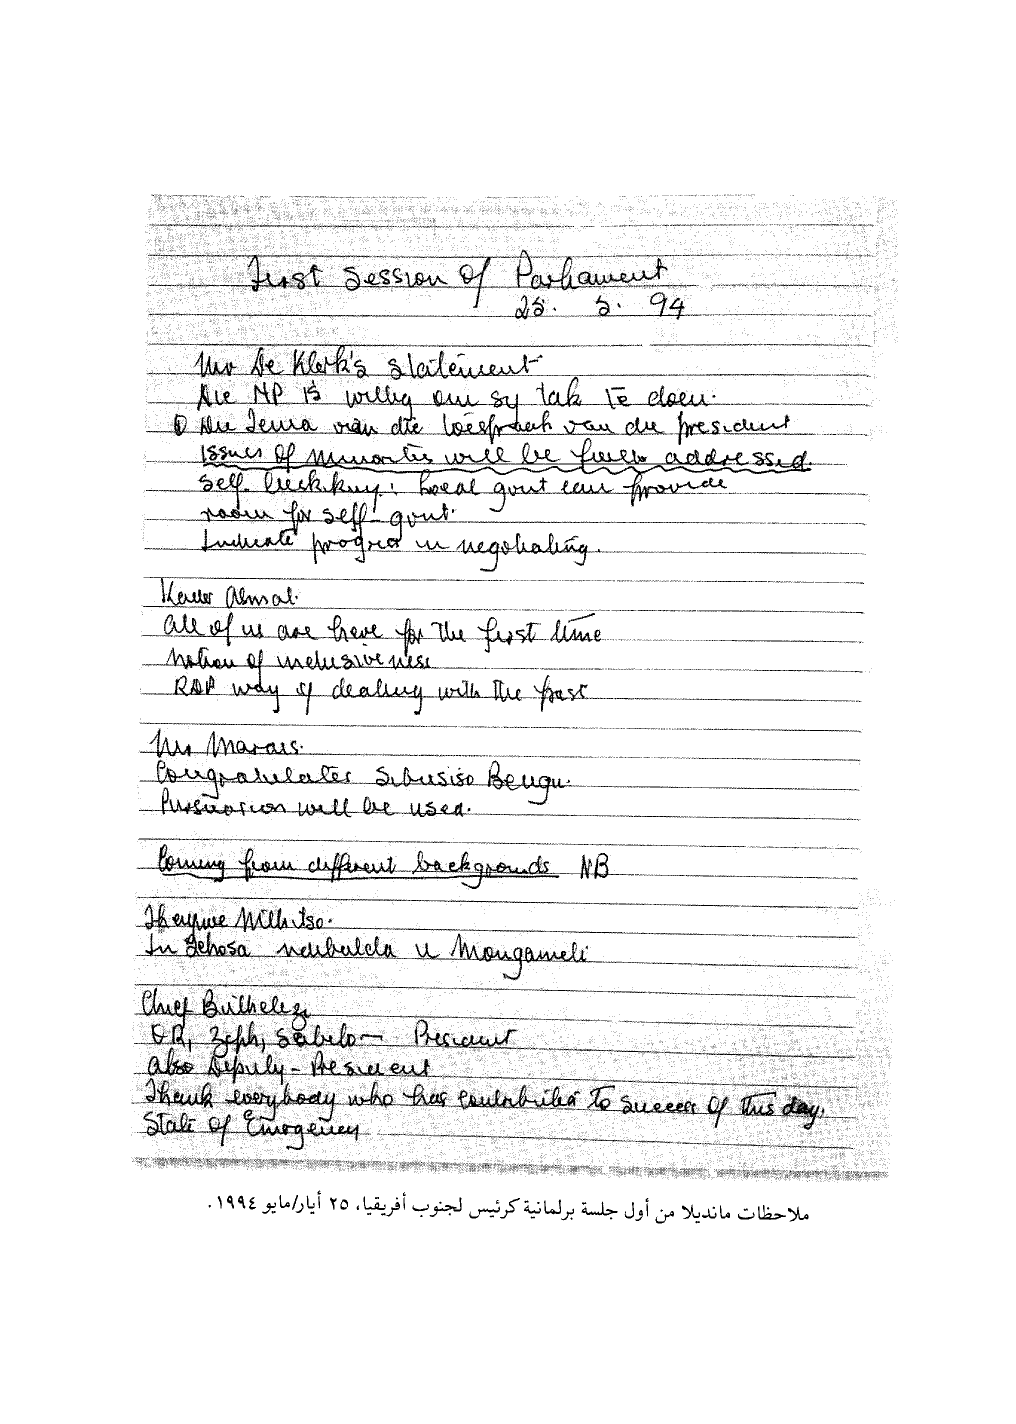 First Session of Parliament
25. 5. 94
Mr De Klerk's statement
Die NP is willig om sy tak te doen.
① Die Tema van die toespraak van die president
Issues of minorities will be fully addressed.
self : Local govt can provide
room for self-govt.
Indicate progress in negotiating.
Kader Asmal.
All of us are here for the first time
Notion of inclusiveness
RDP way of dealing with the past
Mr Marais.
Congratulates Sibusiso Bengu.
Persuasion will be used.
Coming from different backgrounds NB
Thenjiwe Mthintso.
In Xhosa u Mongameli
Chief Buthelezi
OR, Zeph, Sobelo — President
Also Deputy - President
Thank everybody who has contributed to success of this day.
State of Emergency
ملاحظات مانديلا من أول جلسة برلمانية كرئيس لجنوب أفريقيا، ٢٥ أيار/مايو ١٩٩٤.